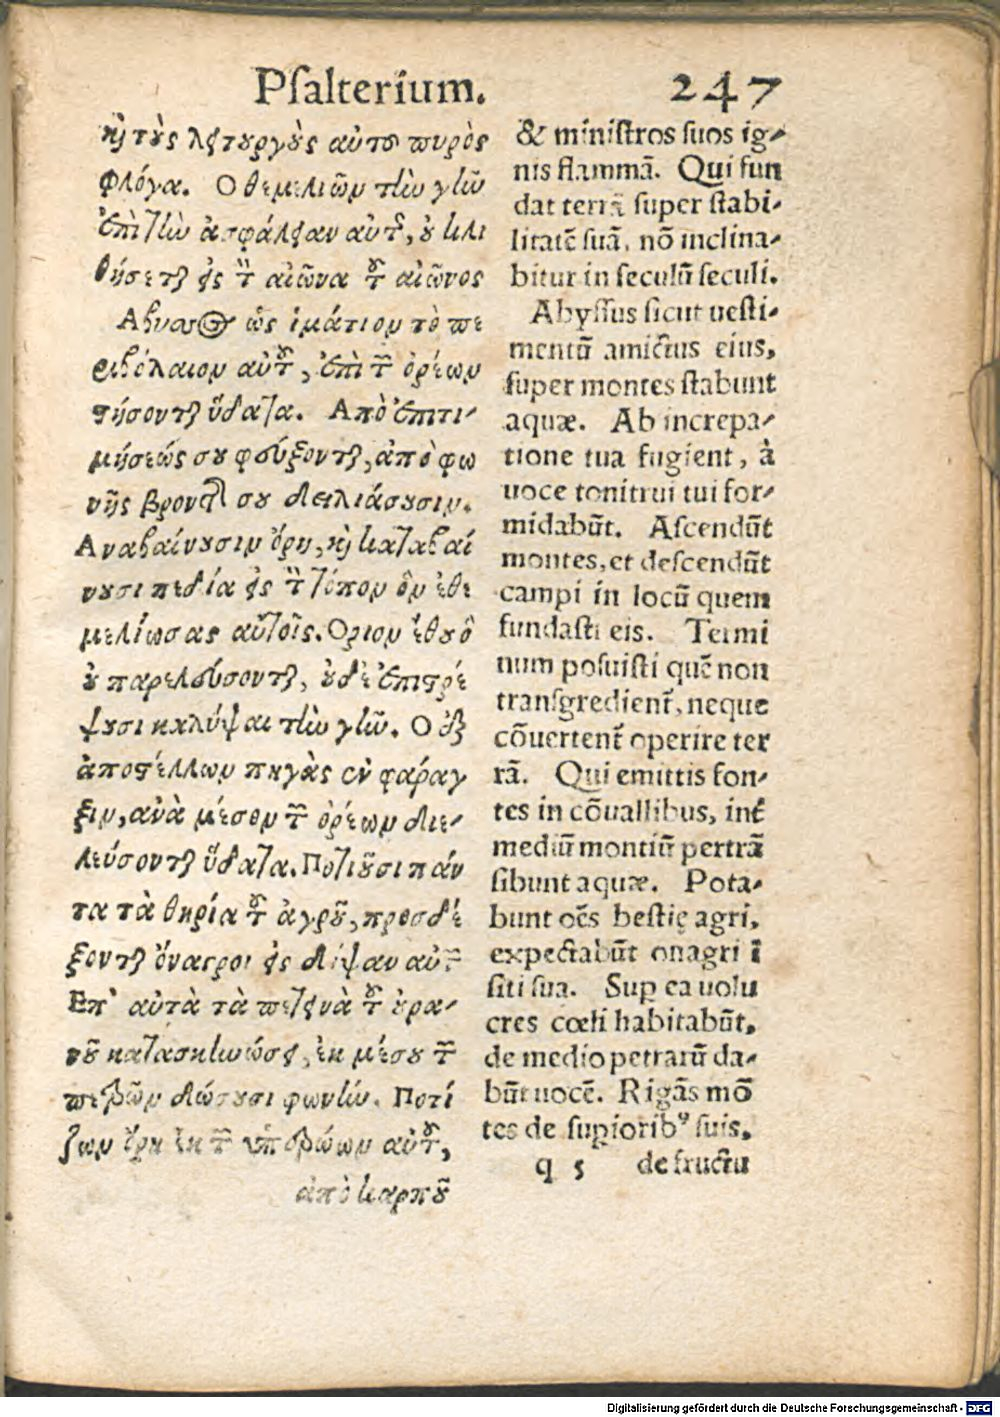 Psalterium. 247
καὶ τοὺς λειτουργοὺς αὐτοῦ πυρὸς
φλόγα. Ὁ θεμελιῶν τὴν γῆν
ἐπὶ τὴν ἀσφάλειαν αὐτῆς, οὐ κλι
θήσεται εἰς τὸν αἰῶνα τοῦ αἰῶνος
Αβυσσος ὡς ἱμάτιον τὸ πε
ριβόλαιον αὐτοῦ, ἐπὶ τῶν ὀρέων
στήσονται ὕδατα. Απὸ ἐπιτι-
μήσεώς σου φεύξονται, ἀπὸ φω
νῆς βροντῆς σου δειλιάσουσιν.
Αναβαίνουσιν ὄρη, καὶ καταβαί
νουσι πεδία εἰς τὸν τόπον ὃν ἐθε
μελίωσας αὐτοῖς. Οριον ἔθου ὃ
οὐ παρελεύσονται, οὐδὲ ἐπιστρέ
ψουσι καλύψαι τὴν γῆν. Ο ἐξ
ἀποστέλλων πηγὰς ἐν φάραγ
ξιν, ἀνὰ μέσον τῶν ὀρέων διε-
λεύσονται ὕδατα. Ποτιοῦσι πάν
τα τὰ θηρία τοῦ ἀγροῦ, προσδέ
ξονται ὄναγροι εἰς δίψαν αὐτῶν
Επ' αὐτὰ τὰ πετεινὰ τοῦ οὐρα-
νοῦ κατασκηνώσει, ἐκ μέσου τῶν
πετρῶν δώσουσι φωνήν. Ποτί
ζων ὄρη ἐκ τῶν ὑπερώων αὐτοῦ,
ἀπὸ καρποῦ
& ministros suos ig-
nis flammā. Qui fun
dat terrā super stabi-
litatē suā, nō inclina-
bitur in seculū seculi.
Abyssus sicut uesti-
mentū amictus eius,
super montes stabunt
aquæ. Ab increpa-
tione tua fugient, à
uoce tonitrui tui for-
midabūt. Ascendūt
montes, et descendūt
campi in locū quem
fundasti eis. Termi
num posuisti quē non
transgredient̃, neque
cōuertent̃ operire ter
rā. Qui emittis fon-
tes in cōuallibus, int̃
mediū montiū pertrā
sibunt aquæ. Pota-
bunt oēs bestię agri,
expectabūt onagri ī
siti sua. Sup̱ ea uolu
cres cœli habitabūt,
de medio petrarū da-
būt uocē. Rigās mō
tes de sup̱iorib⁹ suis,
q 5 de fructu
Digitalisierung gefördert durch die Deutsche Forschungsgemeinschaft - DFG